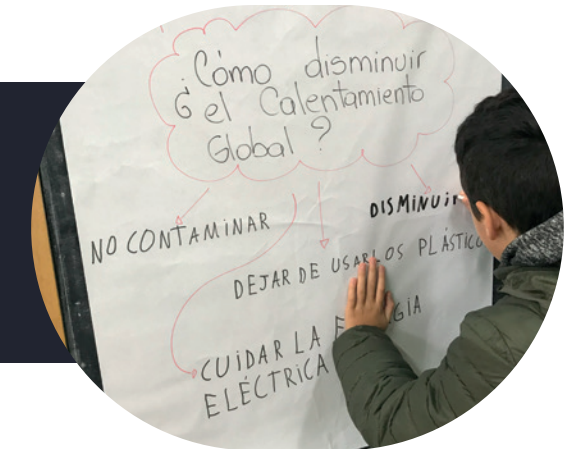 ¿Cómo disminuir
el Calentamiento
Global?
NO CONTAMiNAR
DISMiNUir
DEJAR DE USAR LOS PLÁSTICO
CUiDAR LA
ELÉCTRiCA